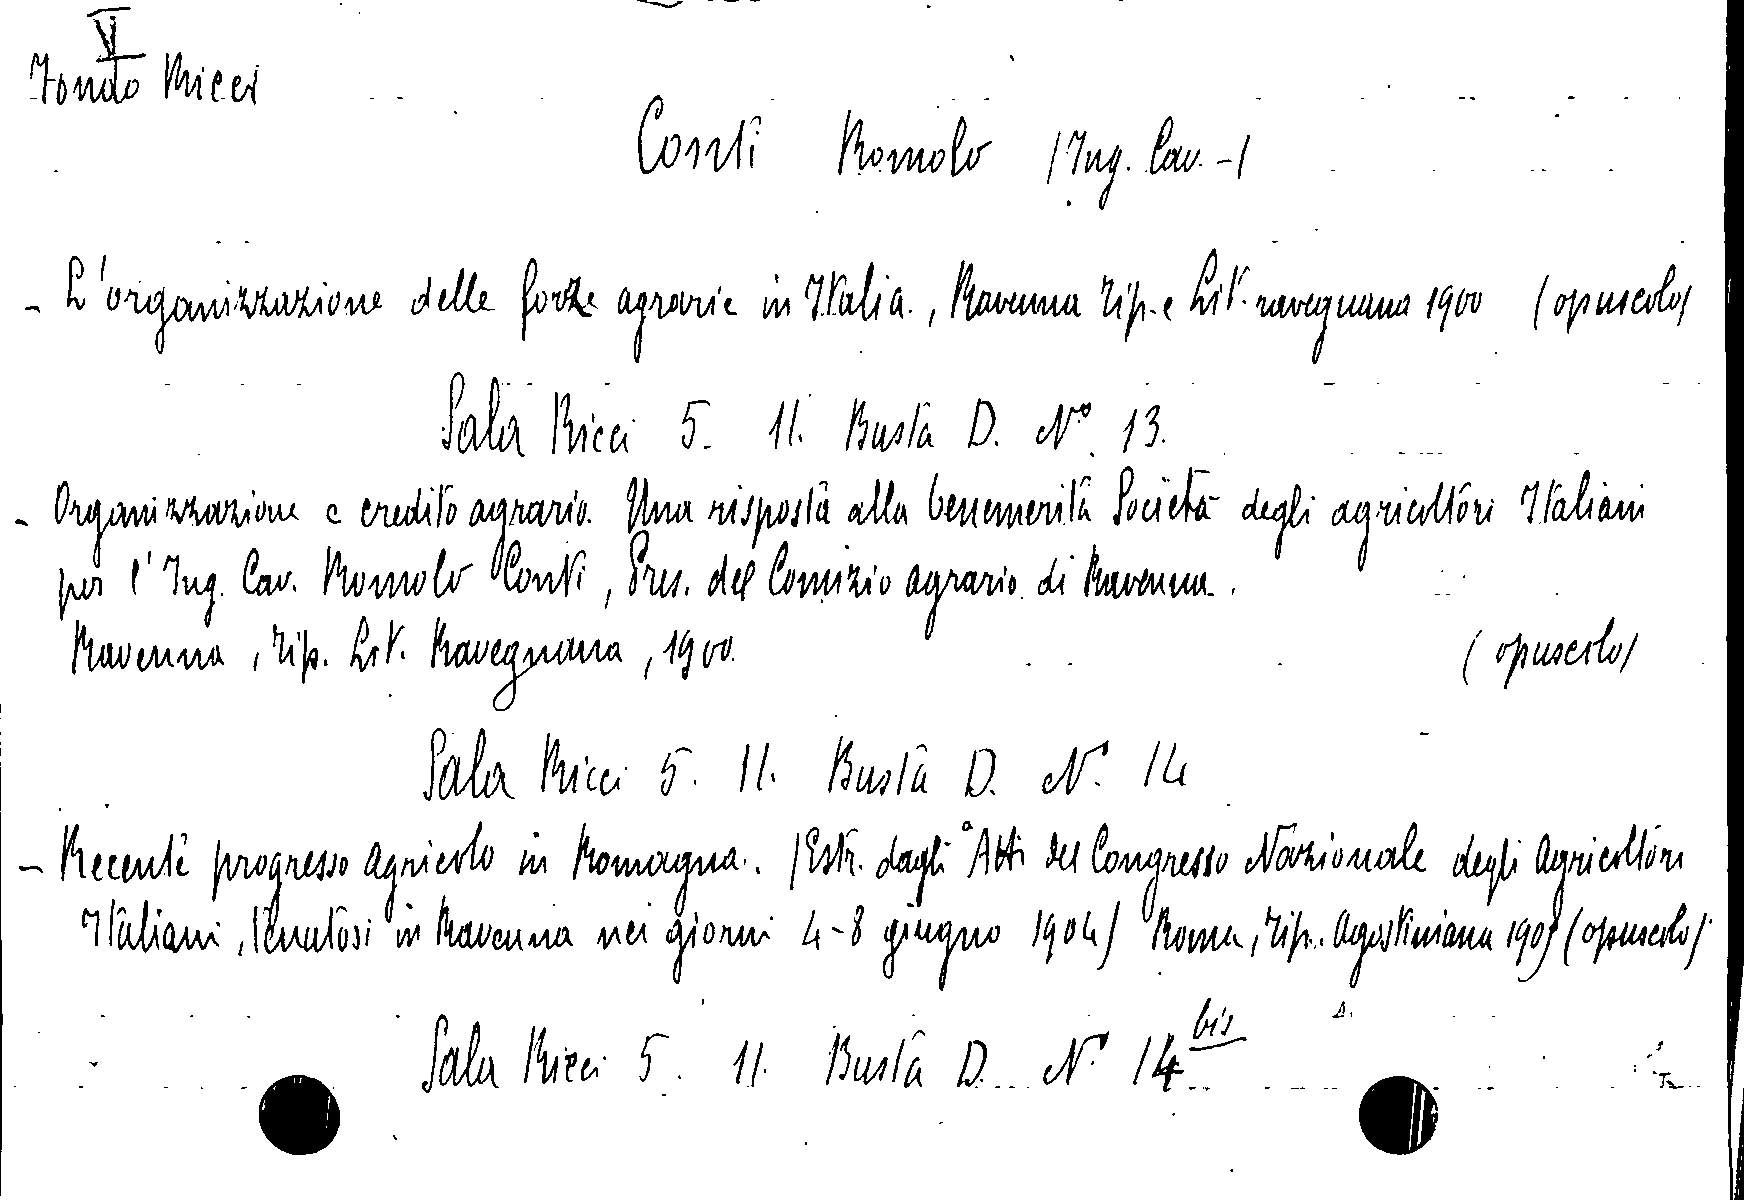 VI
Fondo Ricci
Conti Romolo (Ing. Cav. -)
- L'organizzazione delle forze agrarie in Italia., Ravenna Tip. e Lit. ravegnana 1900 (opuscolo)
Sala Ricci 5. 11. Busta D. N° 13.
- Organizzazione e credito agrario. Una risposta alla benemerita Società degli agricoltori Italiani
per l'Ing. Cav. Romolo Conti, Pres. del Comizio agrario di Ravenna.
Ravenna, Tip. Lit. Ravegnana, 1900. (opuscolo)
Sala Ricci 5. 11. Busta D. N. 14
- Recente progresso agricolo in Romagna. (Estr. dagli "Atti del Congresso Nazionale degli Agricoltori
Italiani, tenutosi in Ravenna nei giorni 4-8 giugno 1904) Roma, Tip. Agostiniana 1905 (opuscolo)
Sala Ricci 5. 11. Busta D. N. 14 bis